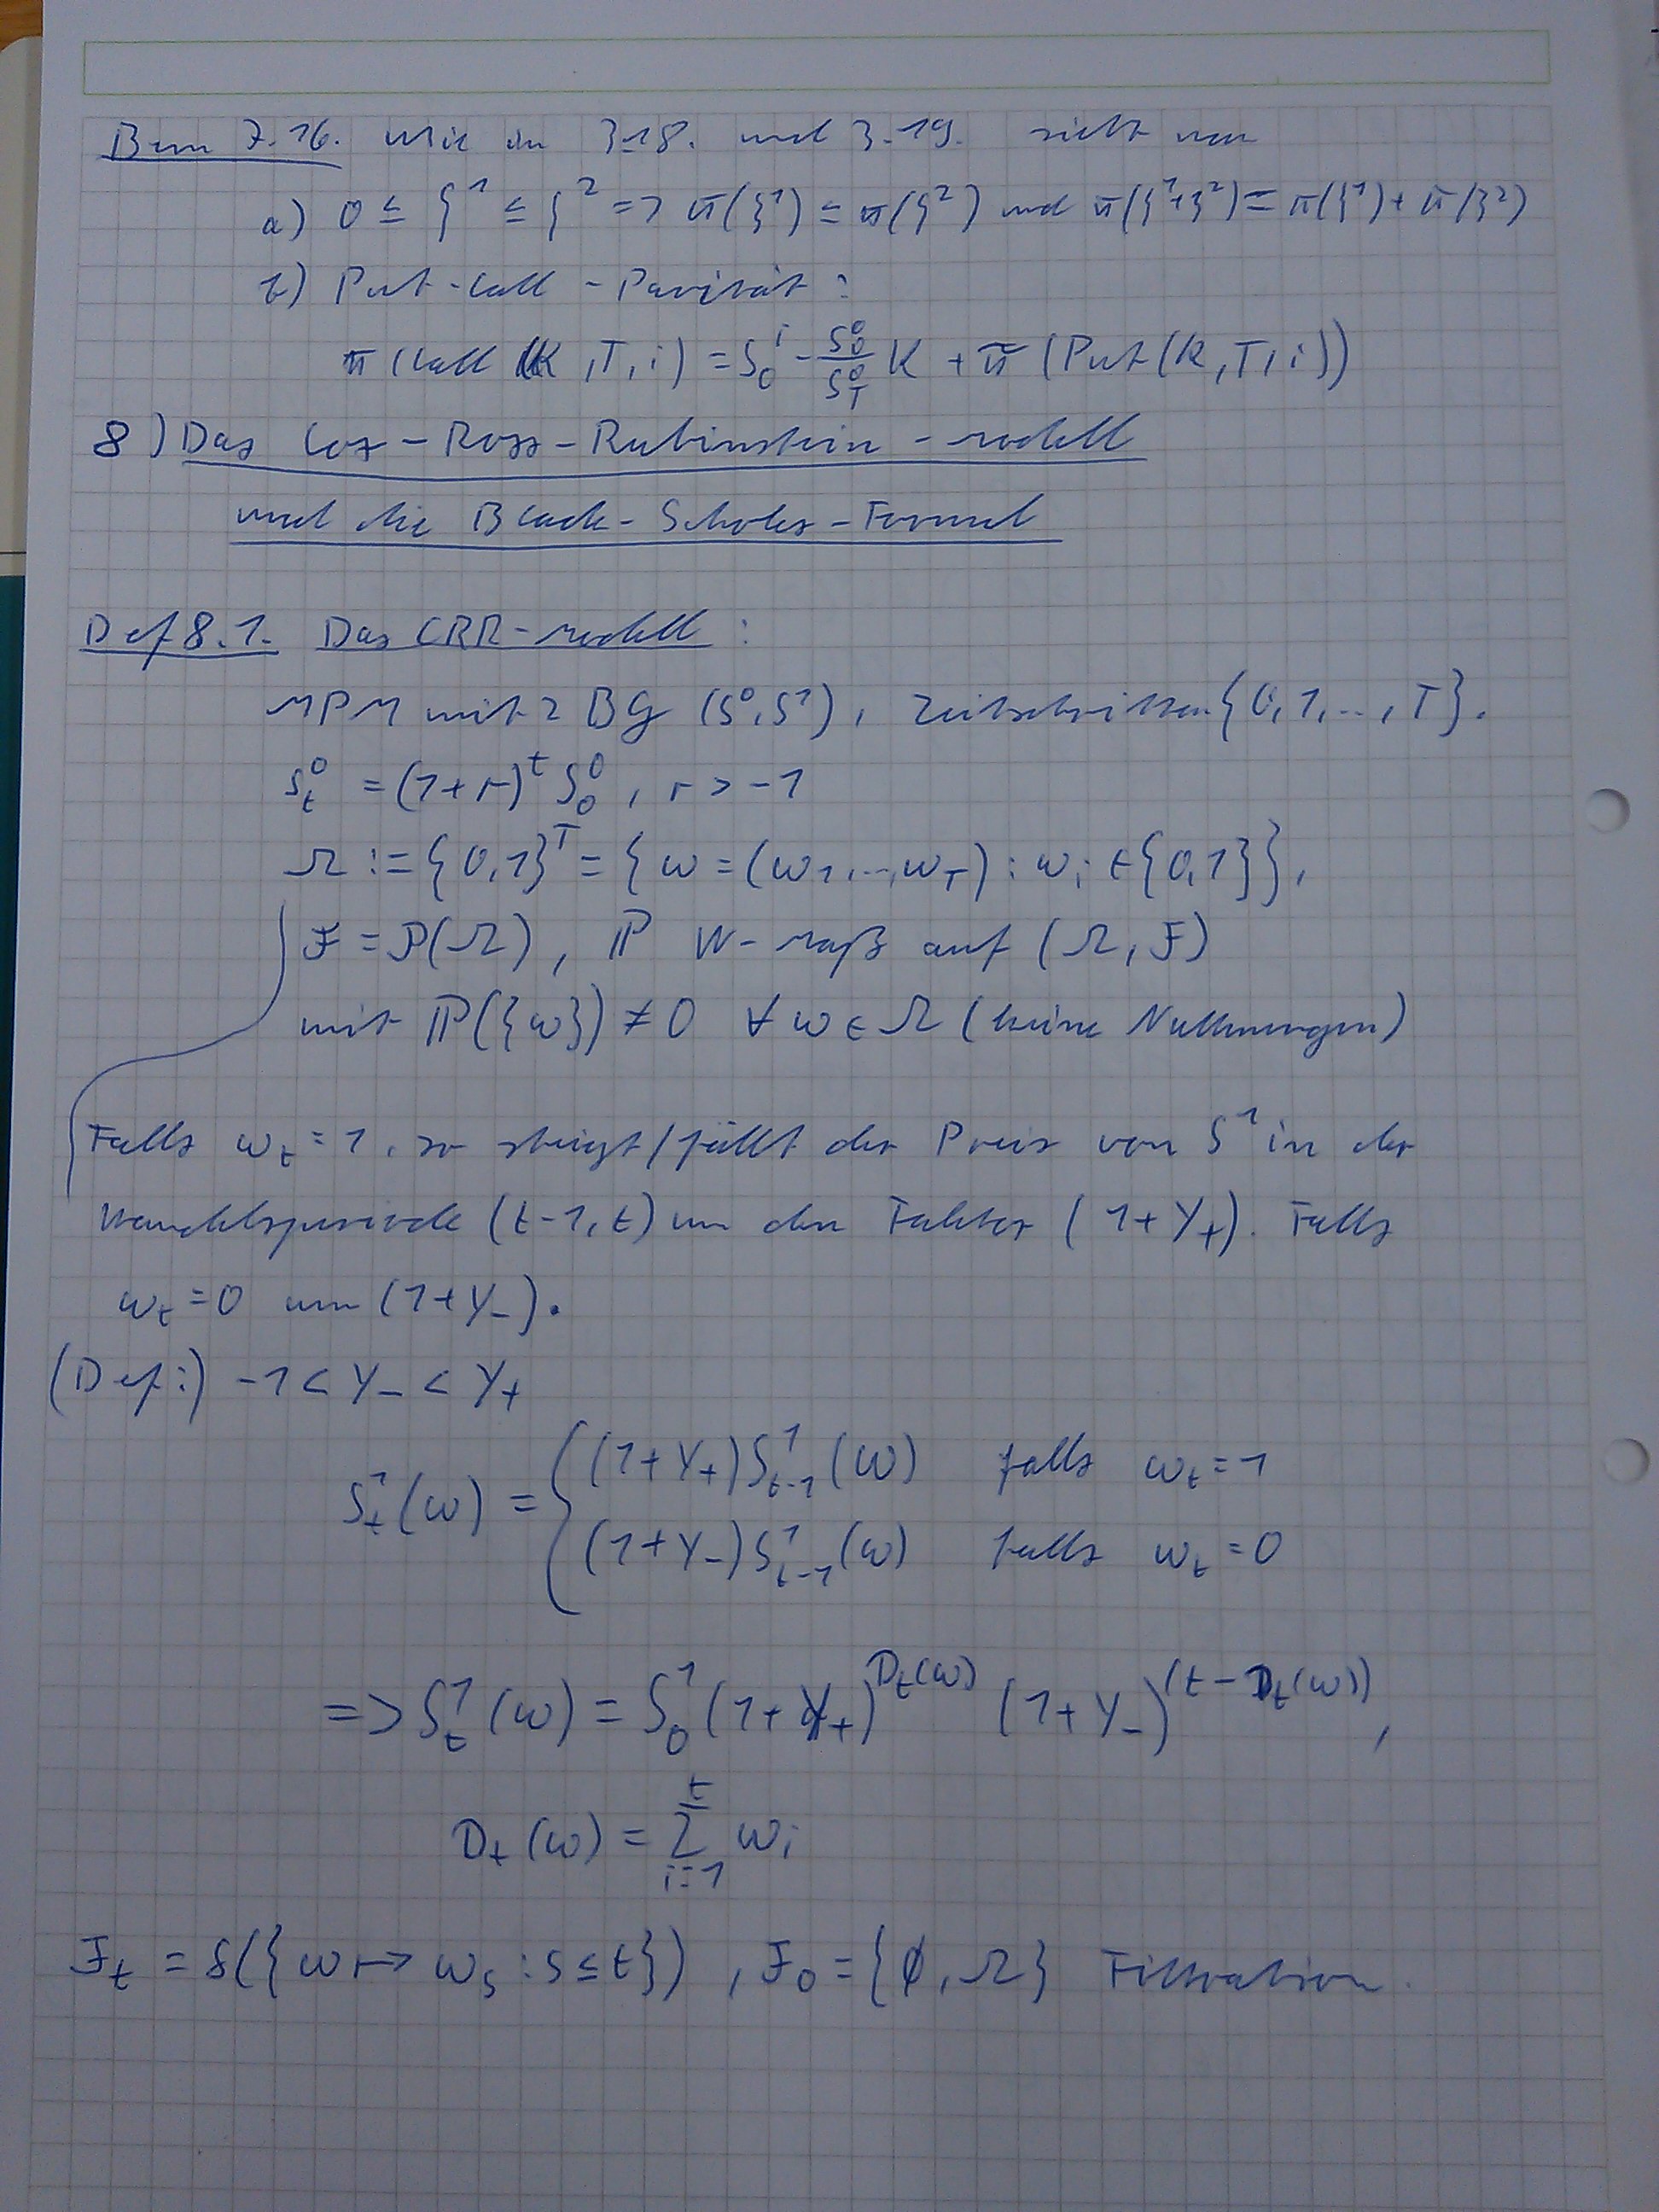 Bem 7.16. Wie in 3.18. und 3.19. sieht man
a) 0 ≤ ξ¹ ≤ ξ² => π(ξ¹) ≤ π(ξ²) und π(ξ¹+ξ²) = π(ξ¹) + π(ξ²)
b) Put-Call-Parität:
π(Call(K,T,i)) = S₀ⁱ - S₀⁰/S_T⁰ K + π(Put(K,T,i))
8) Das Cox-Ross-Rubinstein-Modell
und die Black-Scholes-Formel
Def 8.1. Das CRR-Modell:
MPM mit 2 BG (S⁰,S¹), Zeitschritten {0,1,...,T}.
S_t⁰ = (1+r)^t S₀⁰, r > -1
Ω := {0,1}^T = {ω = (ω₁,...,ω_T) : ω_i ∈ {0,1}},
F = P(Ω), ℙ W-Maß auf (Ω, F)
mit ℙ({ω}) ≠ 0 ∀ ω ∈ Ω (keine Nullmengen)
Falls ω_t = 1, so steigt/fällt der Preis von S¹ in der
Handelsperiode (t-1,t) um den Faktor (1+Y₊). Falls
ω_t = 0 um (1+Y₋).
(Def:) -1 < Y₋ < Y₊
S_t¹(ω) = { (1+Y₊) S¹_{t-1}(ω) falls ω_t = 1
(1+Y₋) S¹_{t-1}(ω) falls ω_t = 0
=> S_t¹(ω) = S₀¹ (1+Y₊)^{D_t(ω)} (1+Y₋)^{(t-D_t(ω))},
D_t(ω) = Σ_{i=1}^t ω_i
F_t = δ({ω ↦ ω_s : s ≤ t}), F₀ = {∅, Ω} Filtration.